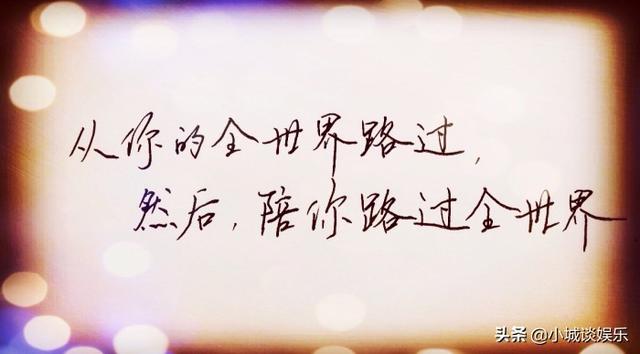 从你的全世界路过,
然后,陪你路过全世界
头条 @小城谈娱乐